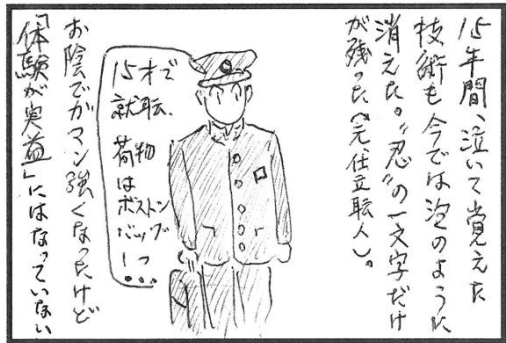 15年間、泣いて覚えた
技術も今では泡のように
消えた。"忍"の一文字だけ
が残った(元、仕立職人)。
15才で
就転、
荷物
は
ボストン
バッグ
一つ
…
お陰でガマン強くなったけど
「体験が実益」にはなっていない